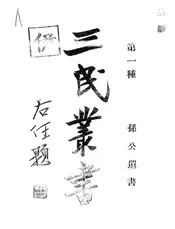 第一種　孫公遺書
三民叢書
右任題